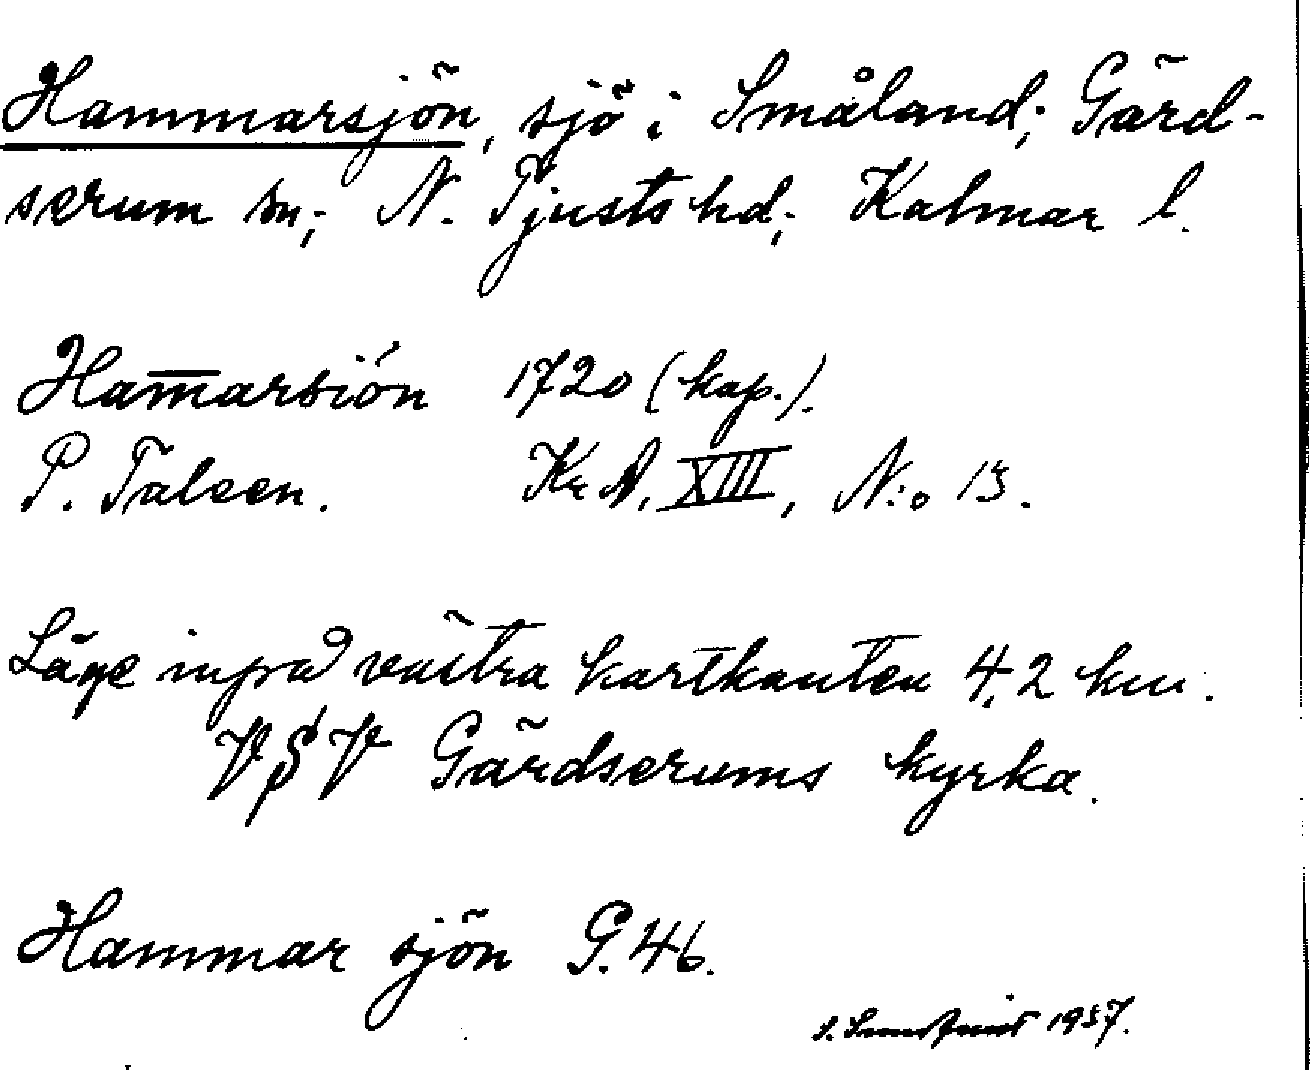 Hammarsjön, sjö i Småland; Gärd-
serum sn; N. Tjusts hd; Kalmar l.
Ham̅arsión 1720 (kap.).
P. Taleen. Kr A. XIII, N:o 13.
Läge invid västra kartkanten 4,2 km.
VSV Gärdserums kyrka.
Hammar sjön G. 46.
1937.